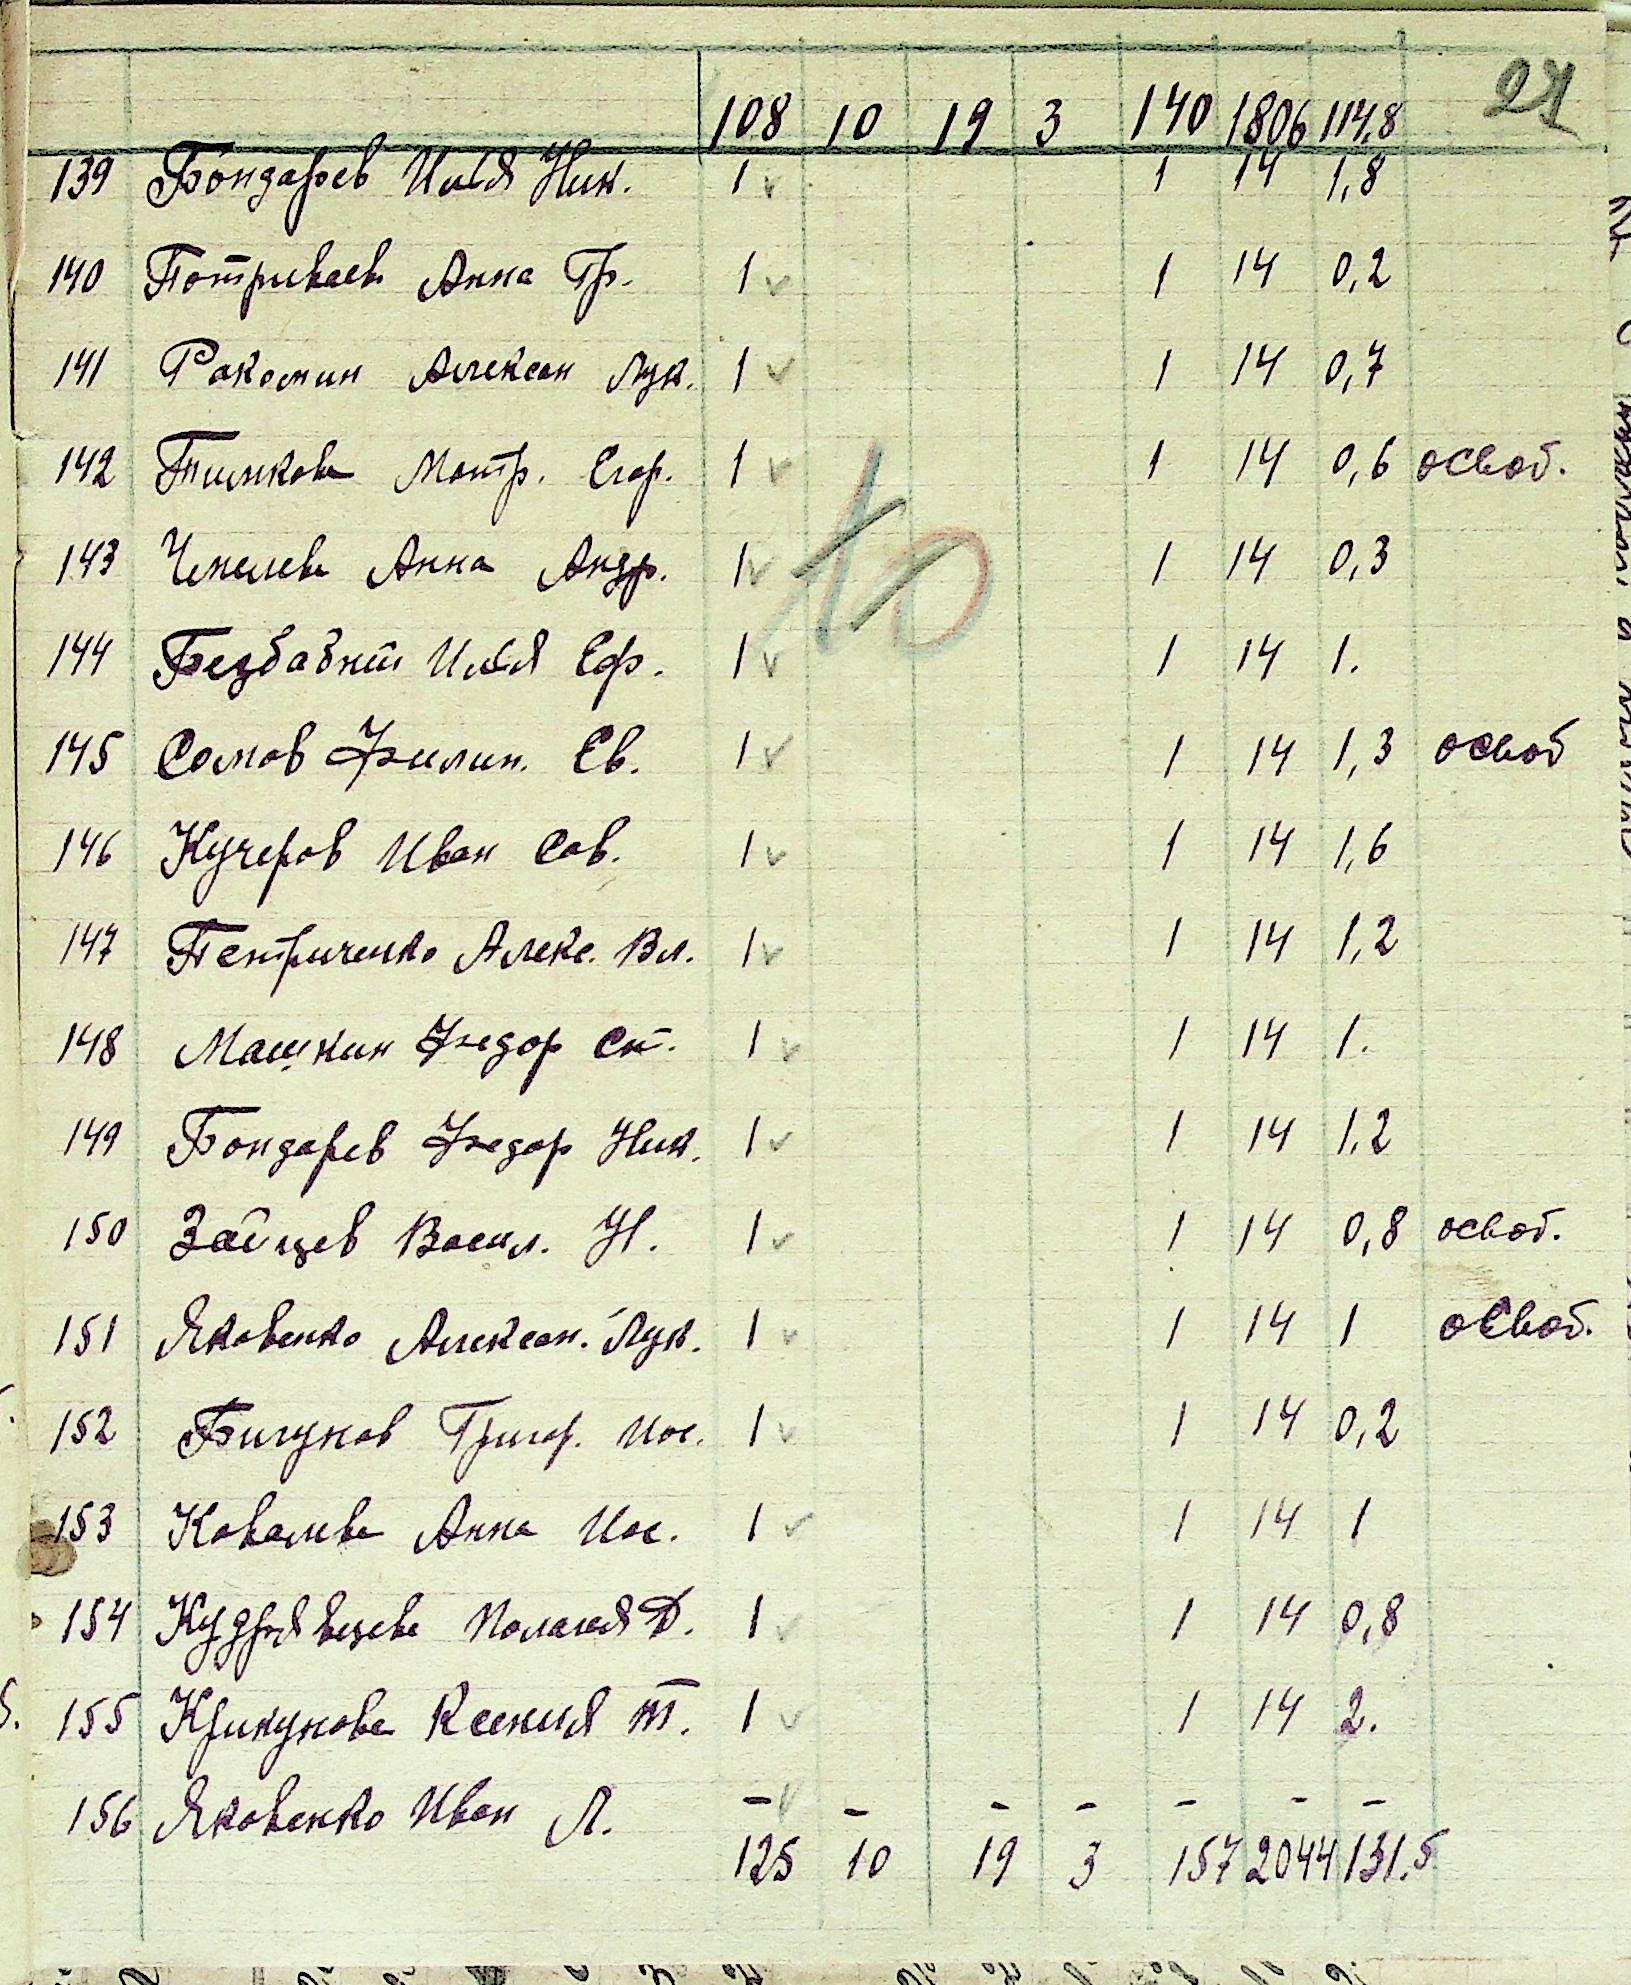 27
108 10 19 3 140 1806 114,8
139 Бондарев Илья Ник. 1 1 14 1,8
140 Потриваев Анна Гр. 1 1 14 0,2
141 Ракомин Алексан Лук. 1 1 14 0,7
142 Тимкова Матр. Егор. 1 1 14 0,6 освоб.
143 Чмелева Анна Андр. 1 1 14 0,3
10
144 Илья Еф. 1 1 14 1.
145 Сомов Филип. Ев. 1 1 14 1,3 освоб
146 Кучеров Иван Сав. 1 1 14 1,6
147 Петриченко Алекс. Вл. 1 1 14 1,2
148 Машкин Федор Ст. 1 1 14 1.
149 Бондарев Федор Ник. 1 1 14 1,2
150 Зайцев Васил. Н. 1 1 14 0,8 освоб.
151 Яковенко Алексан. Лук. 1 1 14 1 освоб.
152 Бигунов Григор. Иос. 1 1 14 0,2
153 Ковалева Анна Иос. 1 1 14 1
154 Кудрявцева Полагея Д. 1 1 14 0,8
155 Крикунова Ксения Т. 1 1 14 2.
156 Яковенко Иван Л. - - - - - - -
125 10 19 3 157 2044 131.5